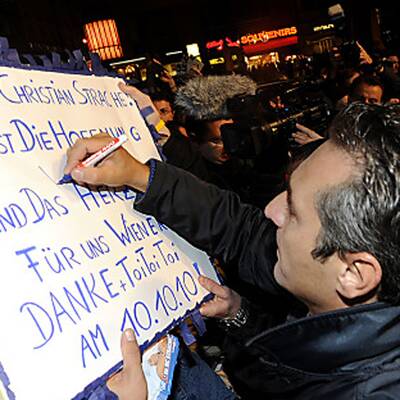 CHRISTIAN STRACHE:
IST DIE HOFFNUNG
UND DAS HERZ
FÜR UNS WIENER
DANKE + TOI TOI TOI
AM 10.10.10!
SOUVENIRS